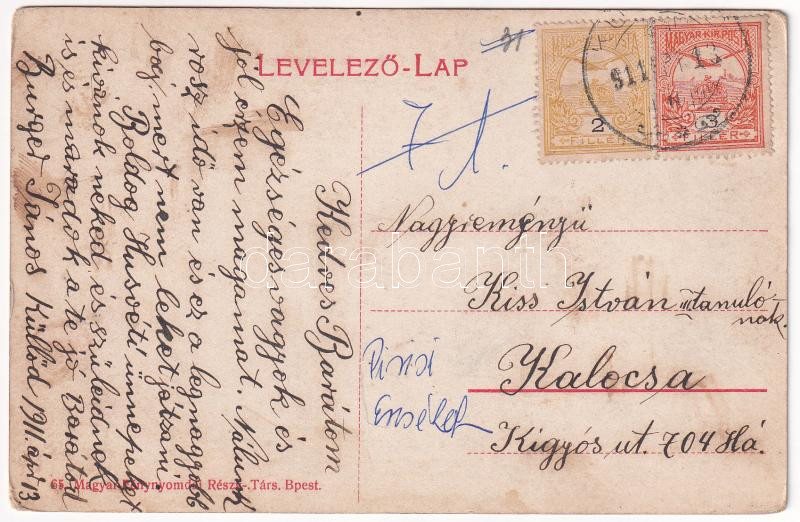 LEVELEZŐ-LAP
31
7 1.
MAGYAR KIR. POSTA
2
FILLÉR
MAGYAR KIR. POSTA
3
FILLÉR
911
13
Kedves Barátom
Egézséges vagyok és
jól érzem magamat. Nálunk
rosz idő van es ez a legnagyobb
baj, mert nem lehet játszani.
Boldog Husvéti ünnepeket
kivánok neked és szüleidnek
is és maradok a te jó Barátod
Burger János Küllőd 1911. ápr 13
Nagyreményü
Kiss István III tanuló-
nak.
Kalocsa
Kigyós ut. 704 Há.
darabanth
65. Magyar Könynyomdai Részv.-Társ. Bpest.